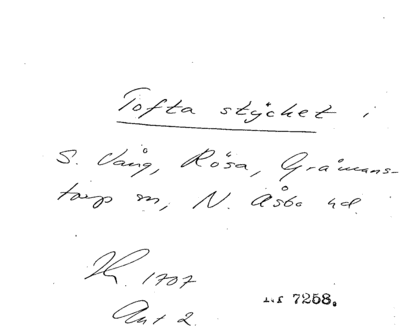 Tofta stycket i
S. Vång, Rösa, Gråmans-
torp sn, N. Åsbo hd.
1707
Akt 2.
7258.